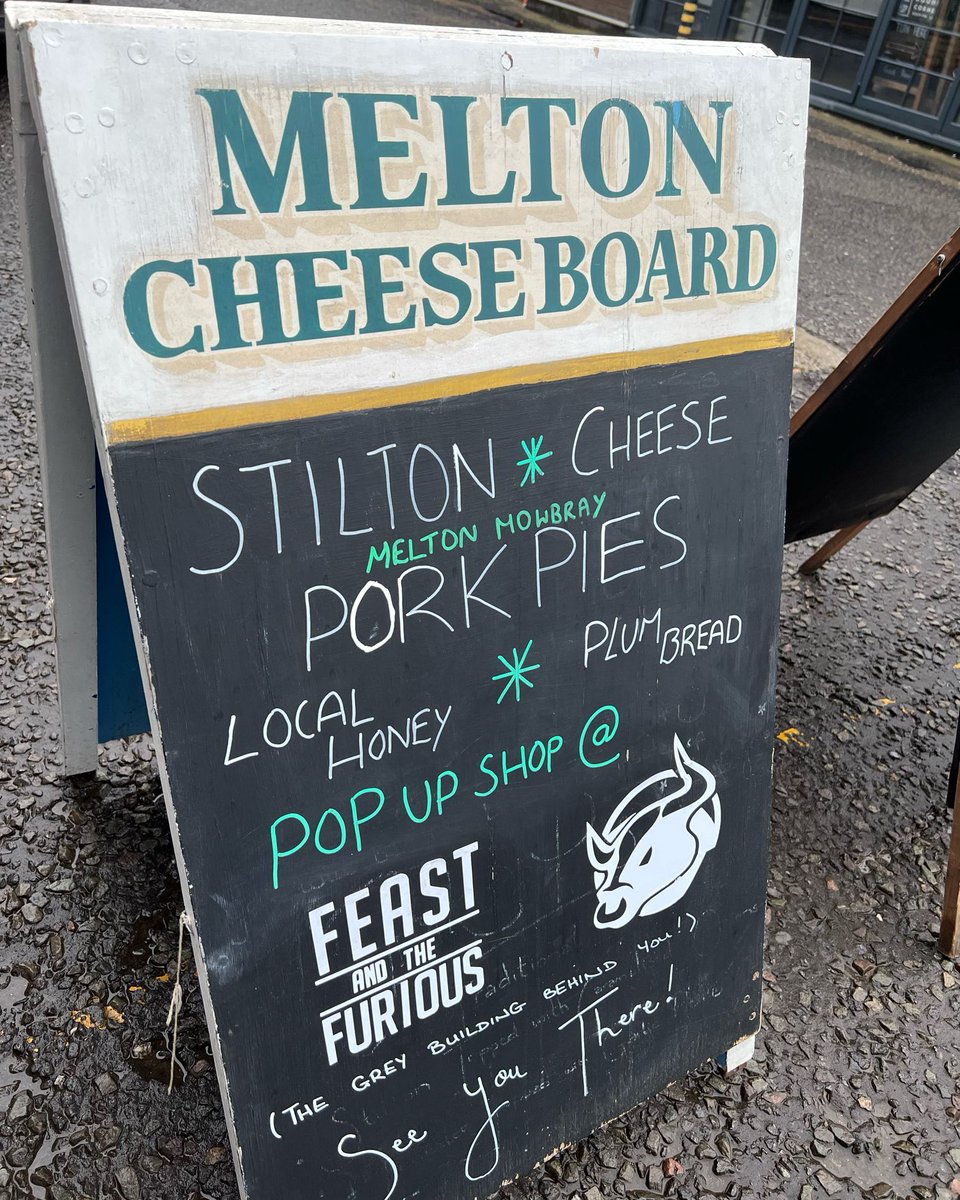 MELTON
CHEESE BOARD
STILTON * CHEESE
MELTON MOWBRAY
PORK PIES
LOCAL HONEY * PLUM BREAD
POP UP SHOP @
FEAST
AND THE
FURIOUS
(THE GREY BUILDING BEHIND YOU!)
See you There!